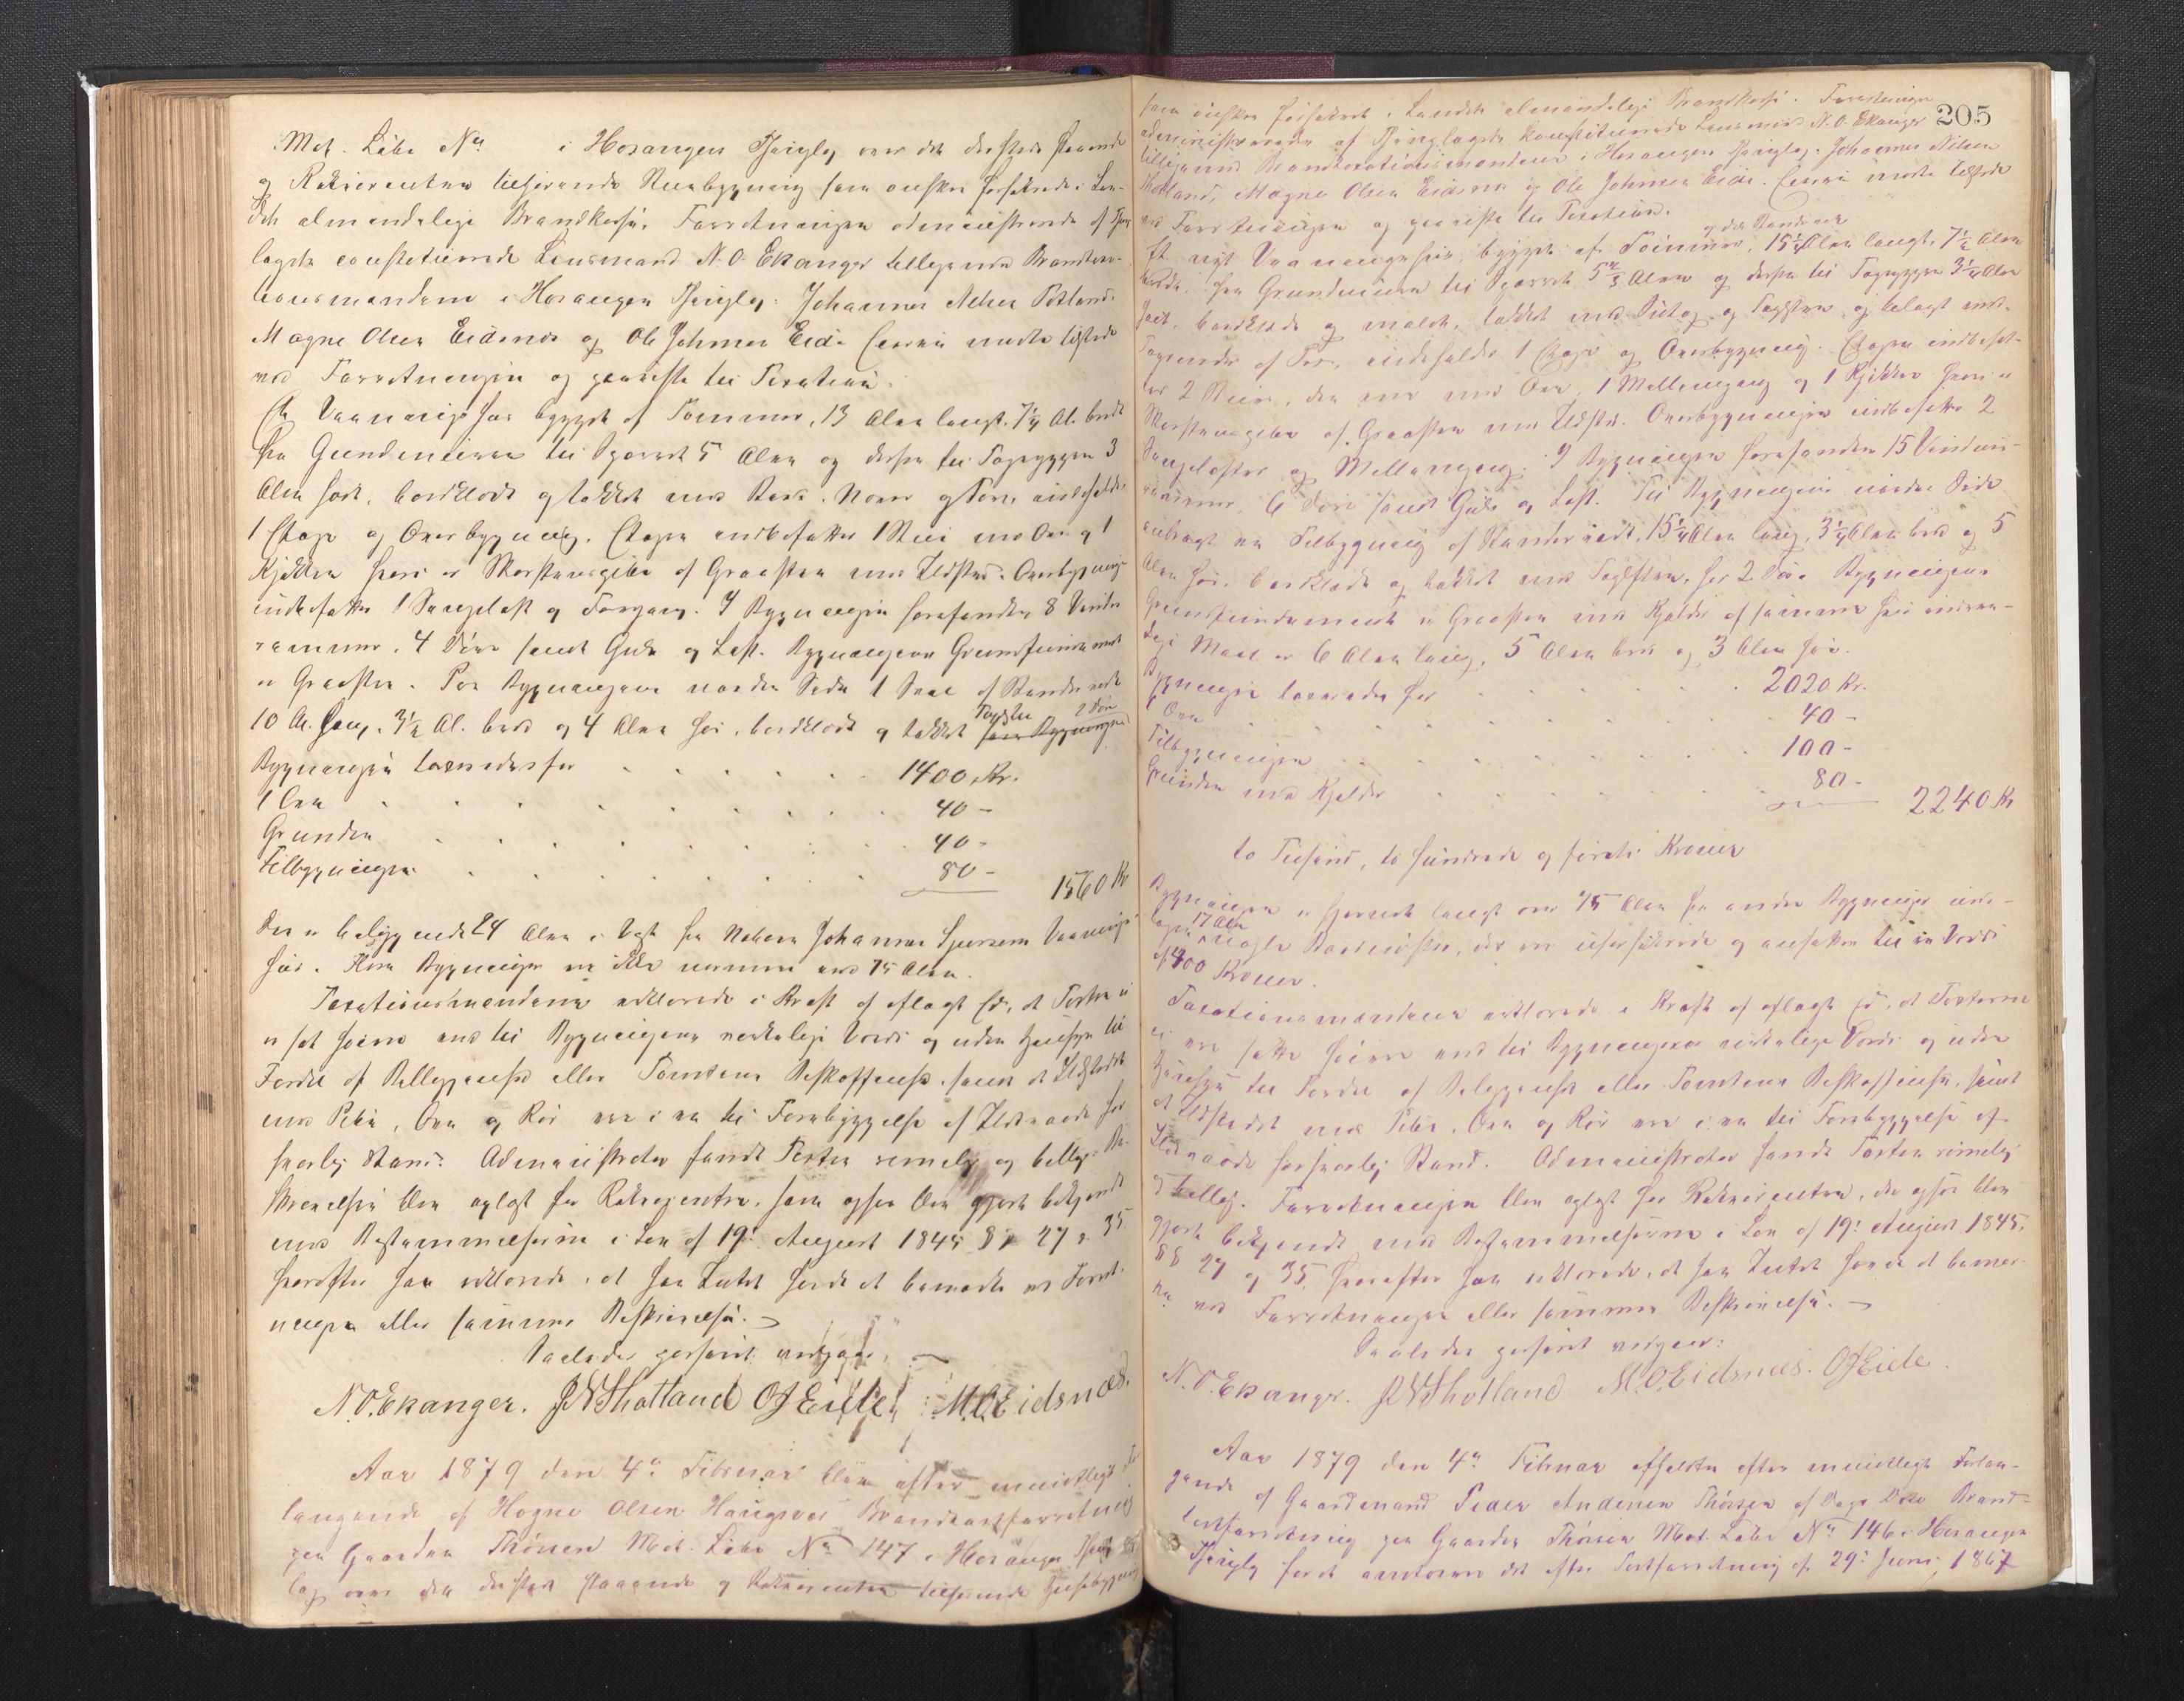 Mat. Løbe No i Hosangers Thinglag over det dersteds staaende
og Rekvirenten tilhørende Nuebygning som ønskes forsikrede i Lan-
dets almindelige Brandkasse. Forretningen administreredes af Thing
lagets constituerede Lensmand N. O. Ekanger tilligemed Brandtax-
tionsmændene i Hosangers Thinglag: Johannes Nilsen
Magne Olsen Eidsnæs og Ole Johnsen Eide
ved Forretningen og gaaes til Taxation.
Et Vaaningshus bygget af Tømmer, 13 Alen langt, 7 1/4 Al. bredt
fra Grundmuren til Sparret 5 Alen og derfra til Tagryggen 3
Alen høit, bordklædt og tækket med Never og Torv, indeholder
1 Etage og Overbygning. Etagen indbefatter 1 Stue med Ovn og 1
Kjøkken hvori er Skorstenspibe af Graasten med Ildsted. Overbygningen
indbefatter 1 Sengeloft og Forgang. I Bygningen forefandtes 8 Vindues
rammer, 4 Døre samt Gulv og Loft. Bygningens Grundfundament
er Graasten. Paa Bygningens nordre Side 1 Sval af Standerverk
10 Al. lang, 3 1/2 Al. bred og 4 Alen høi, bordklædt og tækket
Bygningen taxeredes for 1400 Kr.
1 Ovn 40 -
Grunden 40 -
Tilbygningen 80 - 1560 Kr
Den er beliggende 24 Alen i Vest fra Naboen Johannes Vaanings
hus. Flere Bygninger er ikke nærmere end 75 Alen.
Taxationsmændene erklærede i Kraft af aflagt Ed, at Taxten ei
er sat høiere end til Bygningens virkelige Værdi og uden Hensyn til
Fordel af Beliggenhed eller Tomtens Beskaffenhed, samt at Ildstedet
med Pibe, Ovn og Rør ere i en til Forebyggelse af Ildsvaade for
svarlig Stand. Administrator fandt Taxten rimelig og billig. Be-
skrivelsen blev oplæst for Rekvirenten, som ogsaa blev gjort bekjendt
med Bestemmelserne i Lov af 19de August 1845 §§ 27 og 35
hvorefter han erklærede, at han Intet havde at bemærke ved Forret-
ningen eller sammes Beskrivelse.
Saaledes passeret vedgaaes.
N. O. Ekanger. J N Thotland O J Eide M. O. Eidsnæs.
Aar 1879 den 4de Februar blev efter mindeligt For
langende af Magne Olsen Haugsvær Brandtaxtforretning
paa Gaarden Thonsen Mat. Løbe No 147 i Hosangers Thing
lag over den dersteds staaende og Rekvirenten tilhørende Husebygning
205
som ønskes forsikret i Landets almindelige Brandkasse. Forretningen
administreredes af Thinglagets konstituerede Lensmand N. O. Ekanger
tilligemed Brandtaxationsmændene i Hosangers Thinglag: Johannes Nilsen
Thotland, Magne Olsen Eidsnæs og Ole Johnsen Eide.
ved Forretningen og gaaes til Taxation.
og delt Standverk
Et nyt Vaaningshus, bygget af Tømmer, 15 1/4 Alen langt, 7 1/2 Alen
bredt, fra Grundmuren til Sparret 5 2/3 Alen og derfra til Tagryggen 3 1/4 Alen
høit, bordklædt og malet, tækket med Sutag og Tagsten og belagt
af Torv, indeholder 1 Etage og Overbygning. Etagen indbefat-
ter 2 Stuer, den ene med Ovn, 1 Mellemgang og 1 Kjøkken hvori er
Skorstenspibe af Graasten med Ildsted. Overbygningen indbefatter 2
Sengelofter og Mellemgang. I Bygningen forefandtes 15 Vindues-
rammer, 6 Døre samt Gulv og Loft. Til Bygningens nordre Side
anbragt en Tilbygning af Standerverk, 15 1/4 Alen lang, 3 1/4 Alen bred og 5
Alen høi, bordklædt og tækket med Tagsten, har 2 Døre. Bygningens
Grundfundament er Graasten med Kjelder af samme hvis indven-
dige Maal er 6 Alen lang, 5 Alen bred og 3 Alen høi.
Bygningen taxeredes for 2020 Kr.
Ovn 40 -
Tilbygningen 100 -
Grunden med Kjelder 80 - 2240 Kr
to Tusind, to hundrede og førreti Kroner
Bygningen er fjernet langt over 75 Alen fra andre Bygninger
17 Alen
af 400 Kroner.
Taxationsmændene erklærede i Kraft af aflagt Ed, at Taxterne
ei ere satte høiere end til Bygningens virkelige Værdi og uden
Hensyn til Fordel af Beliggenhed eller Tomtens Beskaffenhed, samt
at Ildstedet med Pibe, Ovn og Rør ere i en til Forebyggelse af
Ildsvaade forsvarlig Stand. Administrator fandt Taxten rimelig
og billig. Forretningen blev oplæst for Rekvirenten, der ogsaa blev
gjort bekjendt med Bestemmelserne i Lov af 19de August 1845,
§§ 27 og 35, hvorefter han erklærede, at han Intet havde at bemær-
ke ved Forretningen eller sammes Beskrivelse.
Saaledes passeret vedgaaes:
N. O. Ekanger. J N Thotland M. O. Eidsnæs. O J Eide.
Aar 1879 den 4de Februar afholdtes efter mindeligt Forlan-
gende af Gaardmand Peder Andersen Thonsen Brand-
taxtforretning paa Gaarden Thonsen Mat. Løbe No 146 i Hosangers
Thinglag efter Taxtforretning af 29de Juni 1867